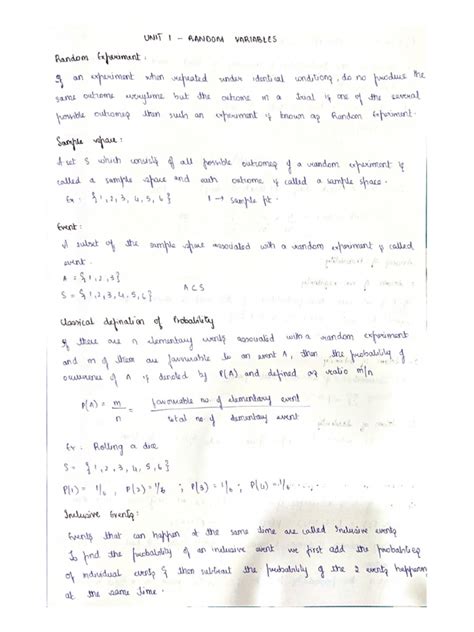 UNIT 1 - RANDOM VARIABLES
Random Experiment:
If an experiment when repeated under identical conditions, do no produce the
same outcome everytime but the outcome in a trial is one of the several
possible outcomes then such an experiment is known as Random Experiment.
Sample space:
A set S which consists of all possible outcomes of a random experiment is
called a sample space and each outcome is called a sample space.
Ex: {1, 2, 3, 4, 5, 6} 1 → sample pt.
Event:
A subset of the sample space associated with a random experiment is called
event.
A = {1, 2, 3}
S = {1, 2, 3, 4, 5, 6} A ⊂ S
Classical defination of Probability
If there are n elementary events associated with a random experiment
and m of them are favourable to an event A, then the probability of
occurence of A is denoted by P(A) and defined as ratio m/n
P(A) = m/n = favourable no. of elementary event / total no. of elementary event
Ex: Rolling a dice
S = {1, 2, 3, 4, 5, 6}
P(1) = 1/6, P(2) = 1/6 ; P(3) = 1/6 ; P(4) = 1/6 . . . .
Inclusive Events:
Events that can happen at the same time are called Inclusive events
To find the probability of an inclusive event we first add the probabilities
of individual events & then subtract the probability of the 2 events happening
at the same time.